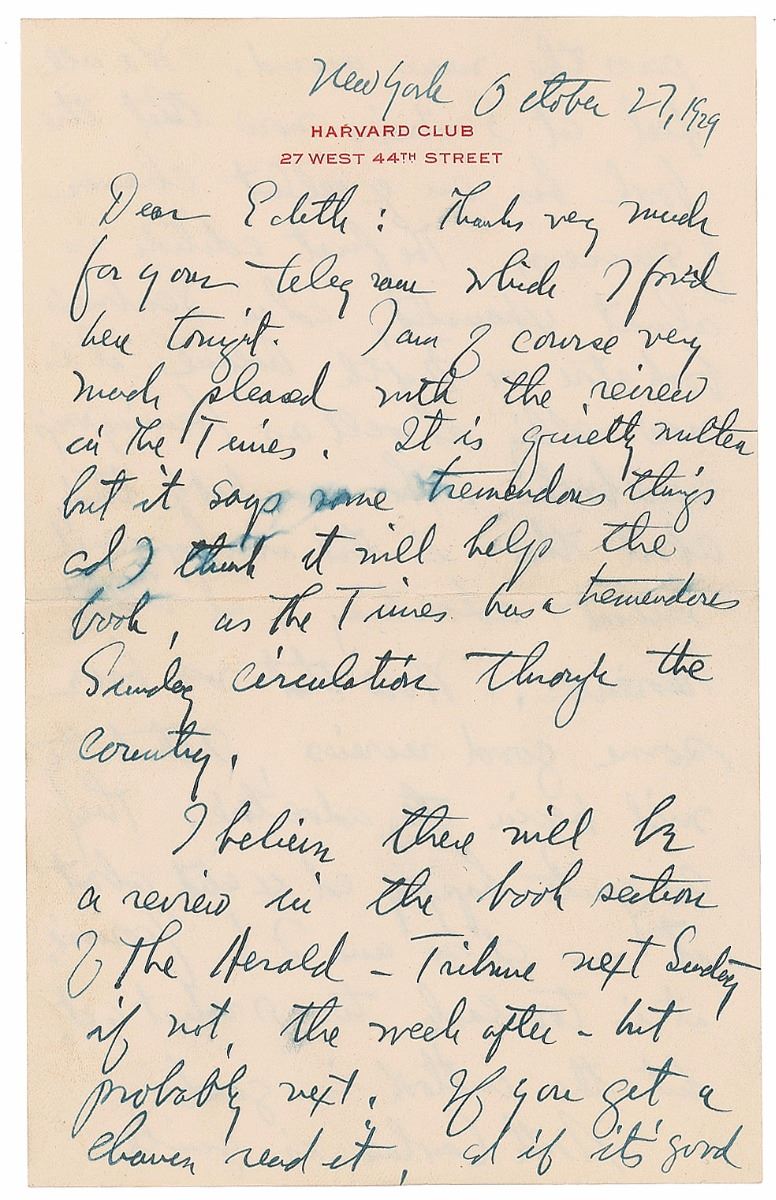 New York October 27, 1929
HARVARD CLUB
27 WEST 44TH STREET
Dear Edith: Thanks very much
for your telegram which I find
here tonight. I am of course very
much pleased with the review
in the Times. It is quietly written
but it says some tremendous things
and I think it will help the
book, as the Times has a tremendous
Sunday circulation through the
country.
I believe there will be
a review in the book section
of the Herald - Tribune next Sunday
if not, the week after - but
probably next. If you get a
chance read it, and if it's good